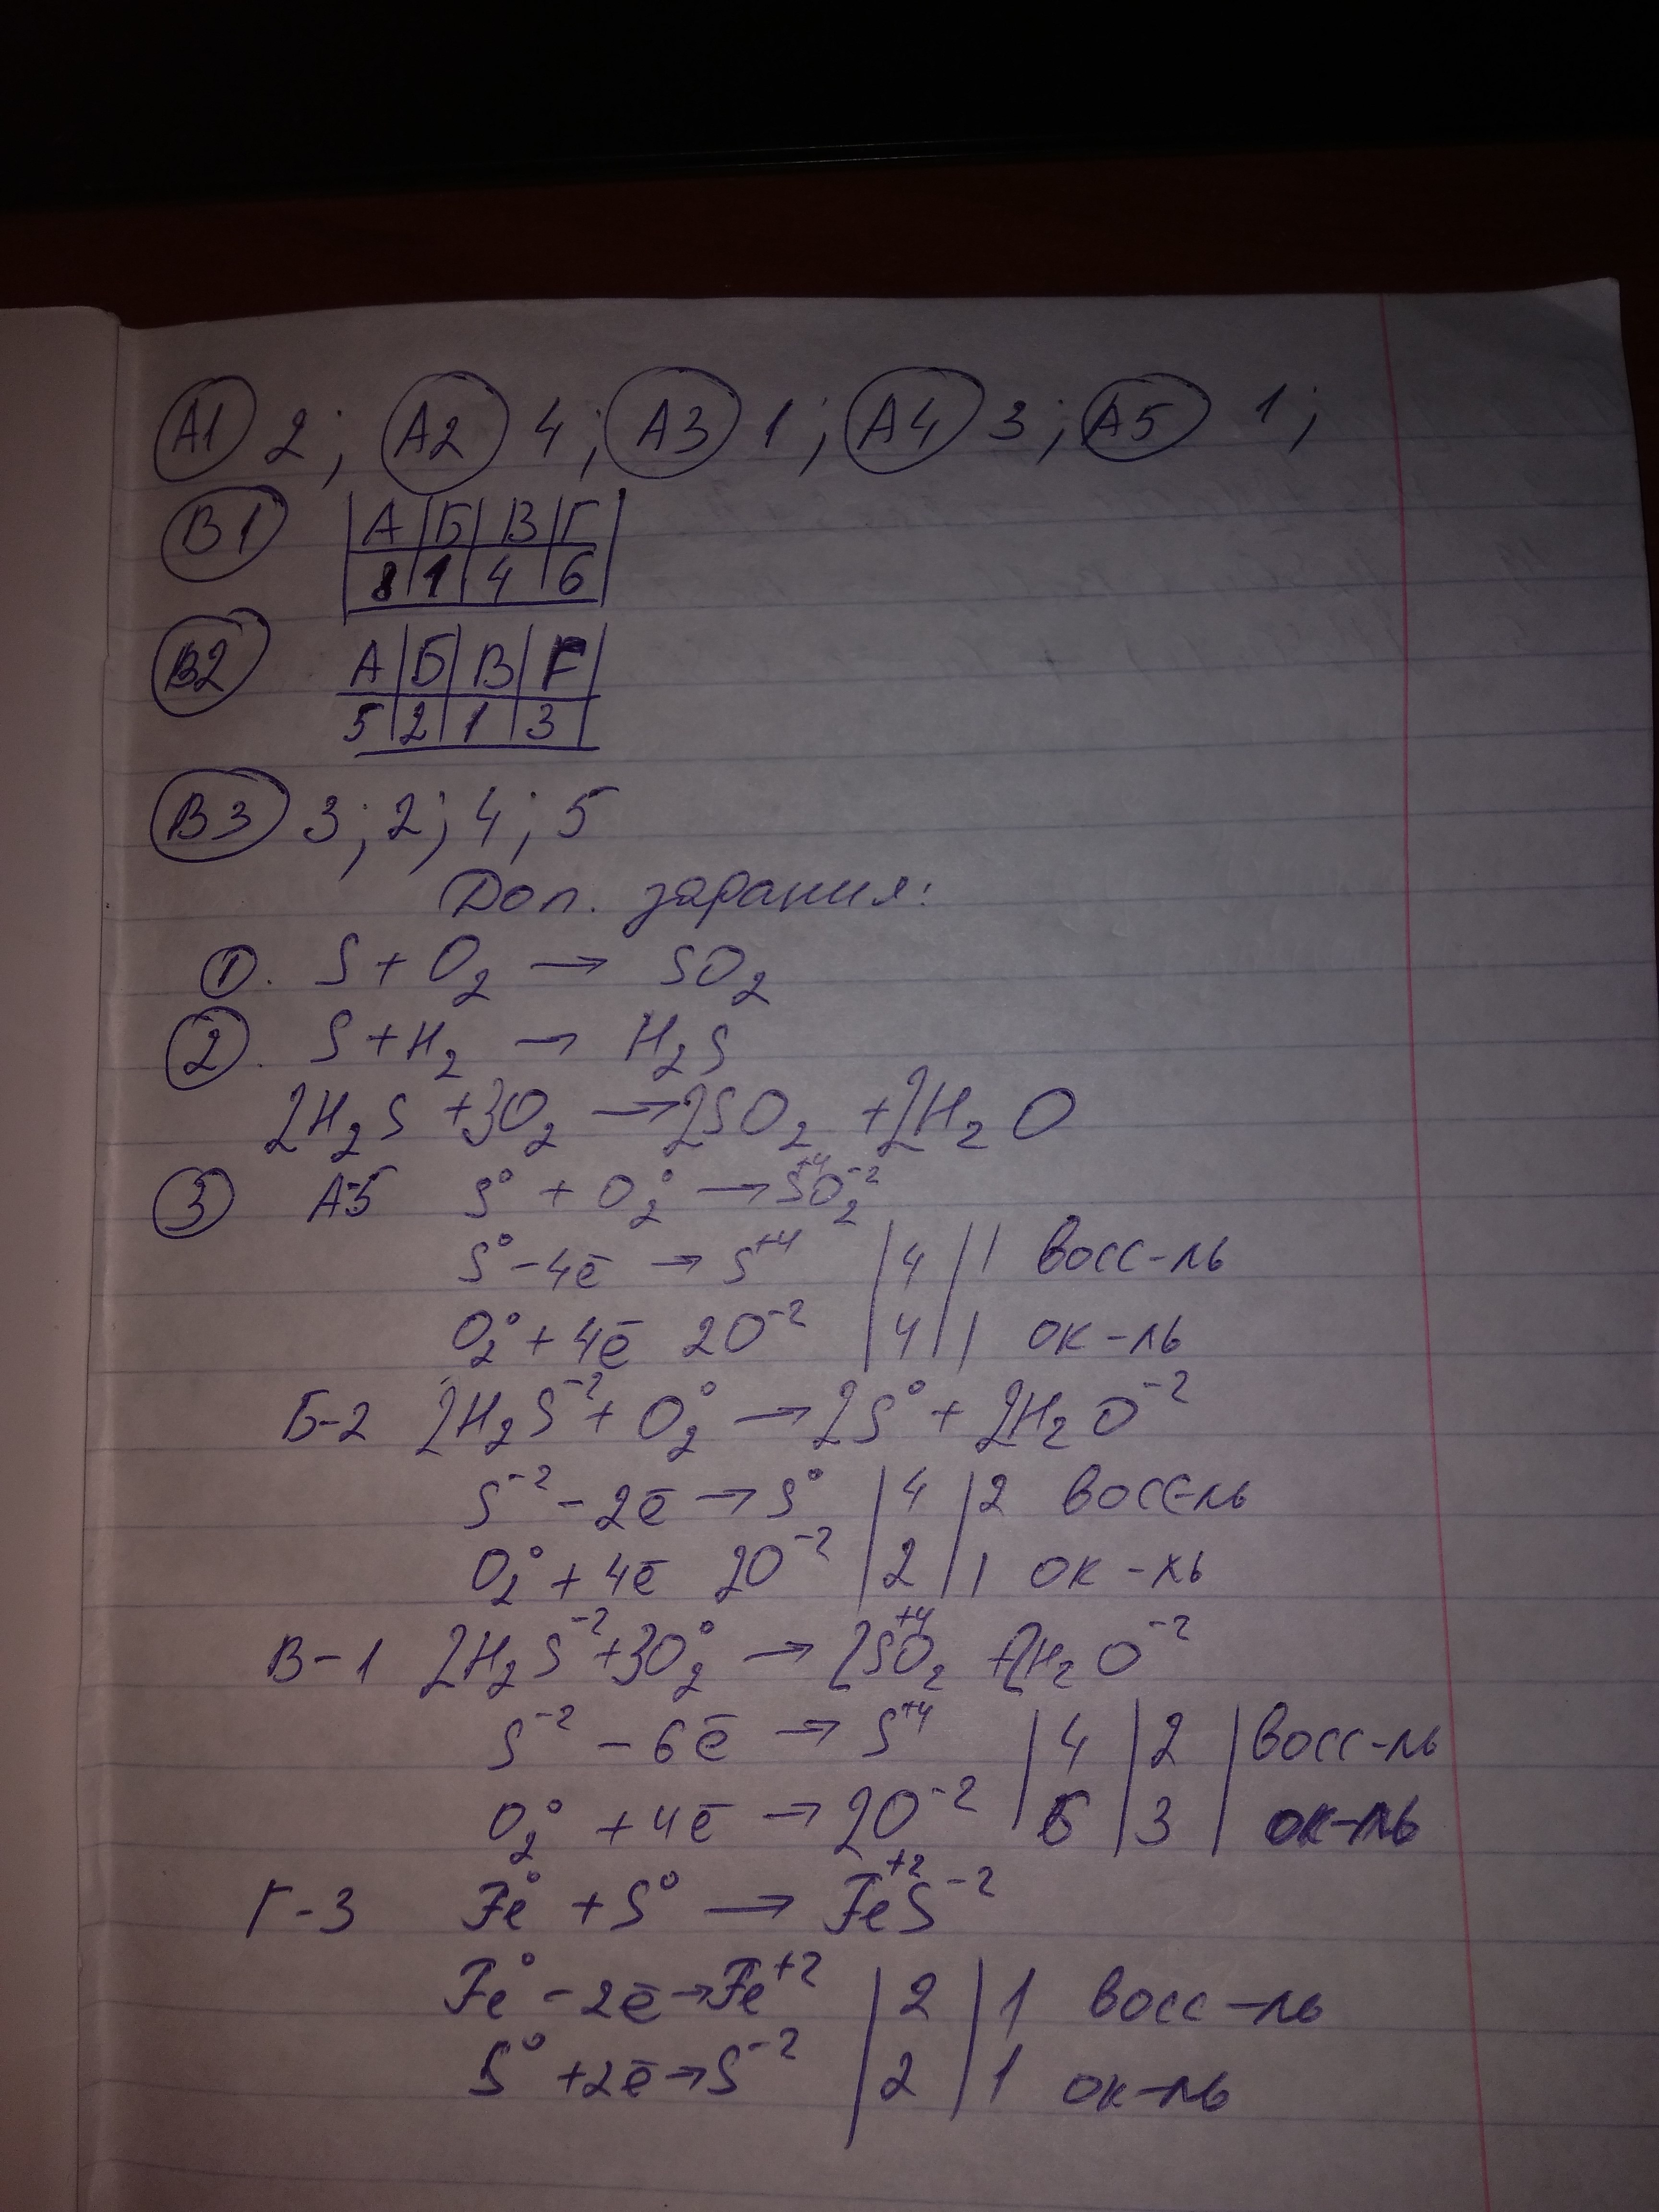 А1 2; А2 4; А3 1; А4 3; А5 1;
В1 | А | Б | В | Г |
| 8 | 1 | 4 | 6 |
В2 | А | Б | В | Г |
| 5 | 2 | 1 | 3 |
В3 3; 2; 4; 5
Доп. задания:
1. S + O₂ → SO₂
2. S + H₂ → H₂S
2H₂S + 3O₂ → 2SO₂ + 2H₂O
3 А-5 S⁰ + O₂⁰ → S⁺⁴O₂⁻²
S⁰ - 4ē → S⁺⁴ | 4 | 1 восс-ль
O₂⁰ + 4ē 2O⁻² | 4 | 1 ок-ль
Б-2 2H₂S⁻² + O₂⁰ → 2S⁰ + 2H₂O⁻²
S⁻² - 2ē → S⁰ | 4 | 2 восс-ль
O₂⁰ + 4ē 2O⁻² | 2 | 1 ок-ль
В-1 2H₂S⁻² + 3O₂⁰ → 2S⁺⁴O₂ + 2H₂O⁻²
S⁻² - 6ē → S⁺⁴ | 4 | 2 | восс-ль
O₂⁰ + 4ē → 2O⁻² | 6 | 3 | ок-ль
Г-3 Fe⁰ + S⁰ → Fe⁺²S⁻²
Fe⁰ - 2ē → Fe⁺² | 2 | 1 восс-ль
S⁰ + 2ē → S⁻² | 2 | 1 ок-ль